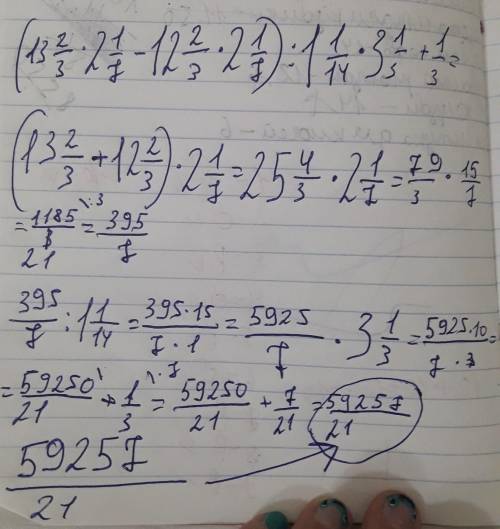 (13 2/3 · 2 1/7 - 12 2/3 · 2 1/7) : 1 1/14 · 3 1/3 + 1/3 =
(13 2/3 + 12 2/3) · 2 1/7 = 25 4/3 · 2 1/7 = 79/3 · 15/7
= 1185/21 \·3 = 395/7
395/7 : 1 1/14 = 395·15/7·1 = 5925/7 · 3 1/3 = 5925·10/7·3 =
= 59250/21 \ + 1/3 \·7 = 59250/21 + 7/21 = 59257/21
59257/21